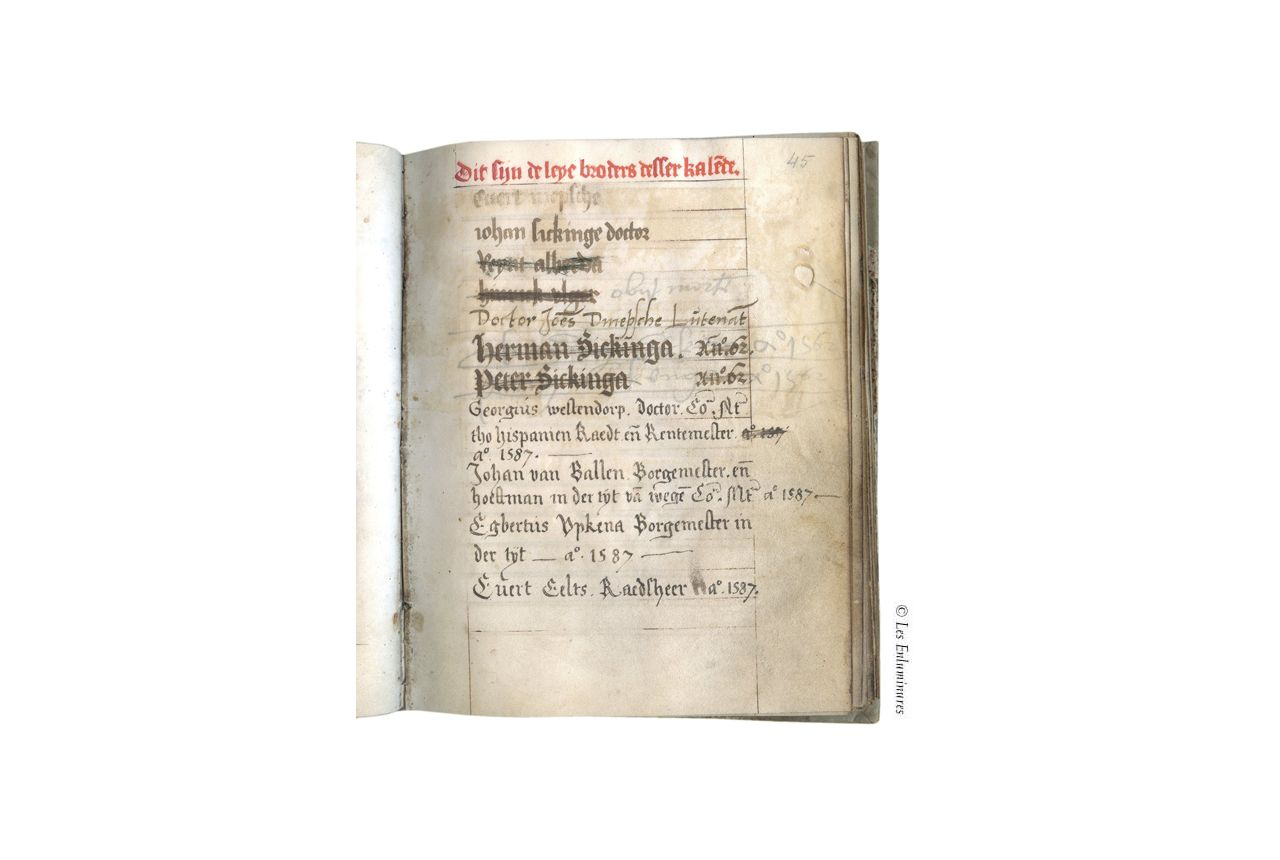 Dit sijn de leye broders desser kalēde.
45
Euert mepsche
iohan sickinge doctor
alberda
obijt morte
Doctor Joēs Dmepsche Lutenāt
Herman Sickinga. Aº. 62.
aº 1562
Peter Sickinga Aº. 62
Georgius westendorp. doctor. Co. Mt
tho hispanien Raedt en̄ Rentemester aº. 87
aº. 1587.
Johan van Ballen Borgemester. en̄
hoeftman in der tyt vā wegē Co. Mt aº 1587
Egbertus Vpkena Borgemester in
der tyt — aº. 1587 —
Euert Eelts. Raedsheer aº. 1587.
© Les Enluminures